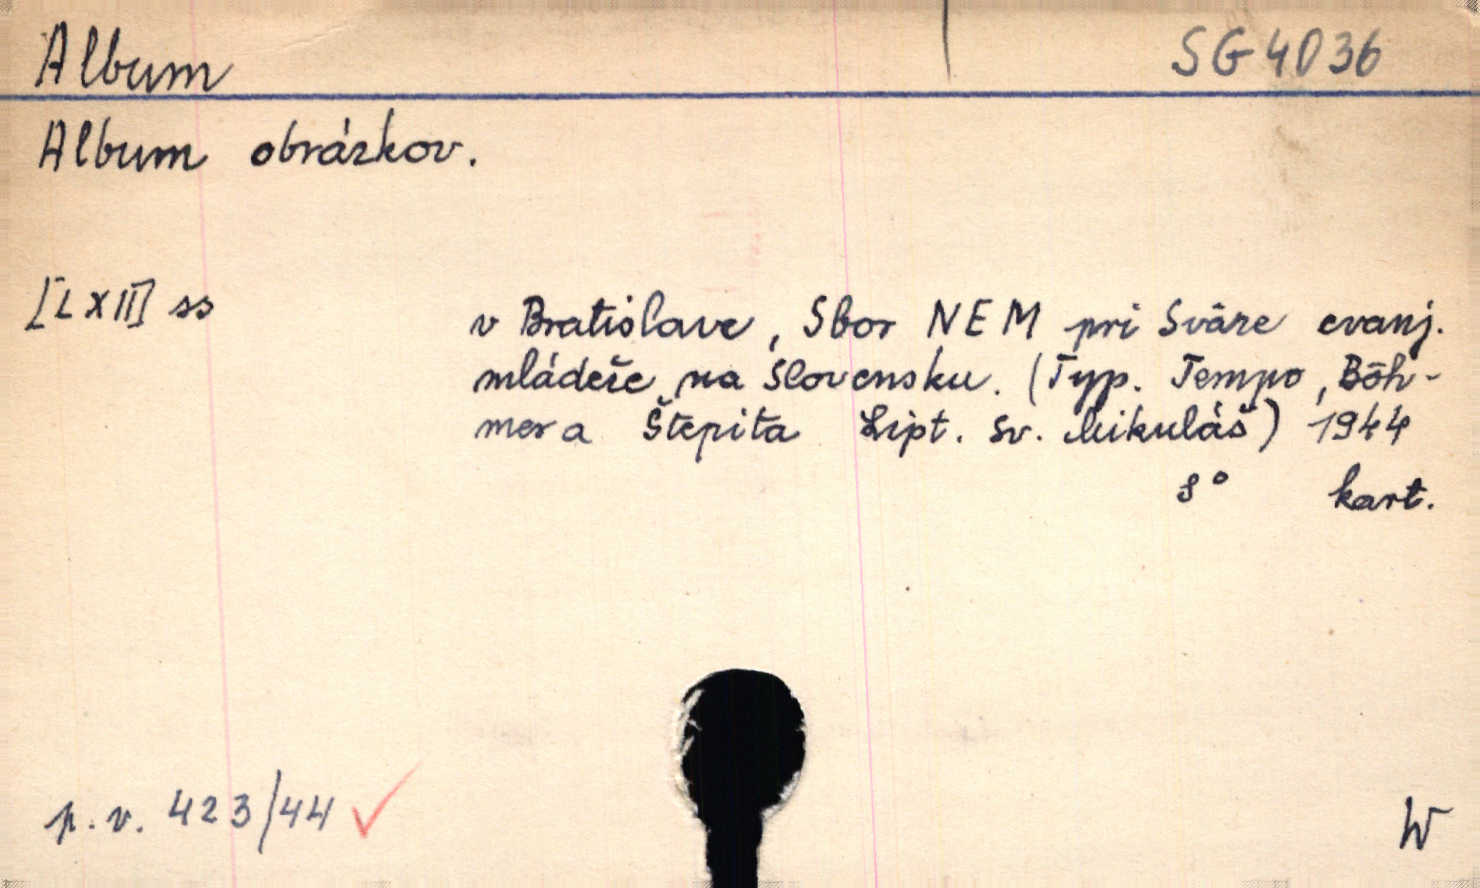 Album
SG 4036
Album obrázkov.
[LXII] ss
v Bratislave, Sbor NEM pri Sväze evanj.
mládeže na Slovensku. (Typ. Tempo, Böh-
mer a Štepita Lipt. Sv. Mikuláš) 1944
8° kart.
p. v. 423/44
W